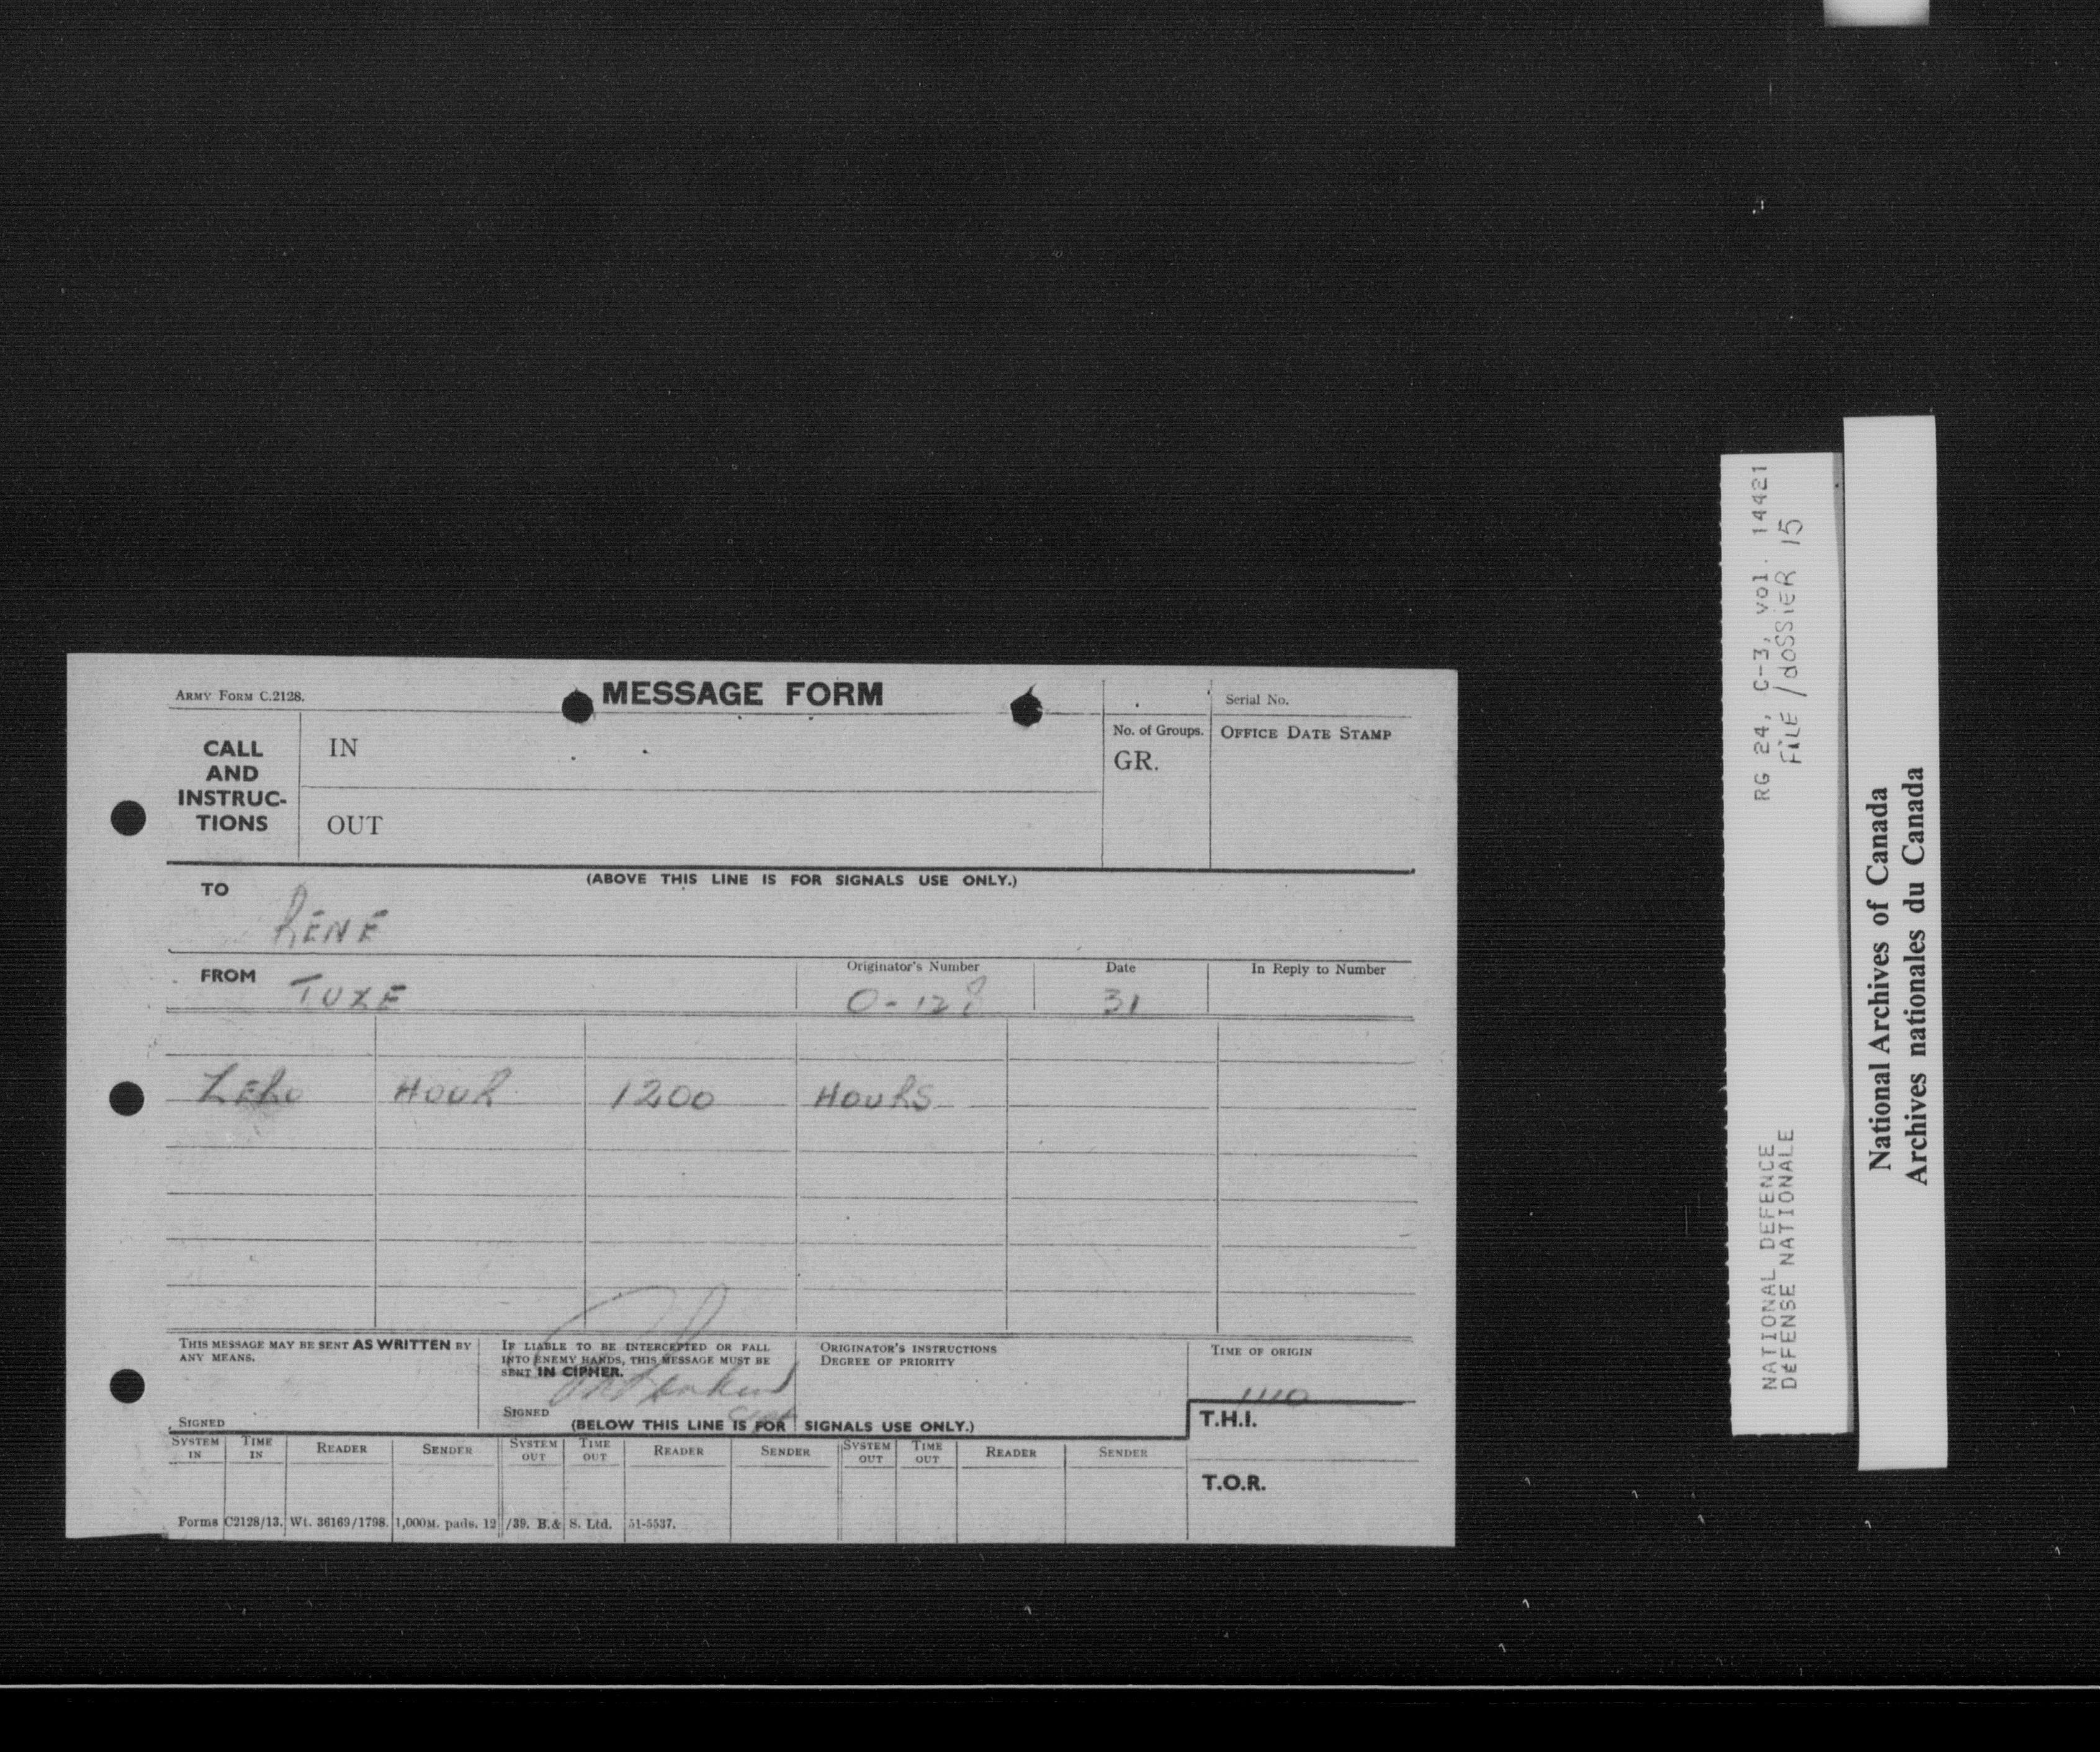 ARMY FORM C.2128.
MESSAGE FORM
Serial No.
CALL AND INSTRUC-TIONS
IN
OUT
No. of Groups.
GR.
OFFICE DATE STAMP
(ABOVE THIS LINE IS FOR SIGNALS USE ONLY.)
TO
RENE
FROM TUZE
Originator's Number
O-128
Date
31
In Reply to Number
ZERO HOUR 1200 HOURS
THIS MESSAGE MAY BE SENT AS WRITTEN BY
ANY MEANS.
SIGNED
IF LIABLE TO BE INTERCEPTED OR FALL
INTO ENEMY HANDS, THIS MESSAGE MUST BE
SENT IN CIPHER.
SIGNED
ORIGINATOR'S INSTRUCTIONS
DEGREE OF PRIORITY
TIME OF ORIGIN
1110
(BELOW THIS LINE IS FOR SIGNALS USE ONLY.)
T.H.I.
T.O.R.
SYSTEM IN TIME IN READER SENDER SYSTEM OUT TIME OUT READER SENDER SYSTEM OUT TIME OUT READER SENDER
Forms C2128/13. Wt. 36169/1798. 1,000M. pads. 12/39. B.& S. Ltd. 51-5537.
RG 24, C-3, vol. 14421
FILE/dOSSIER 15
NATIONAL DEFENCE
DéFENSE NATIONALE
National Archives of Canada
Archives nationales du Canada